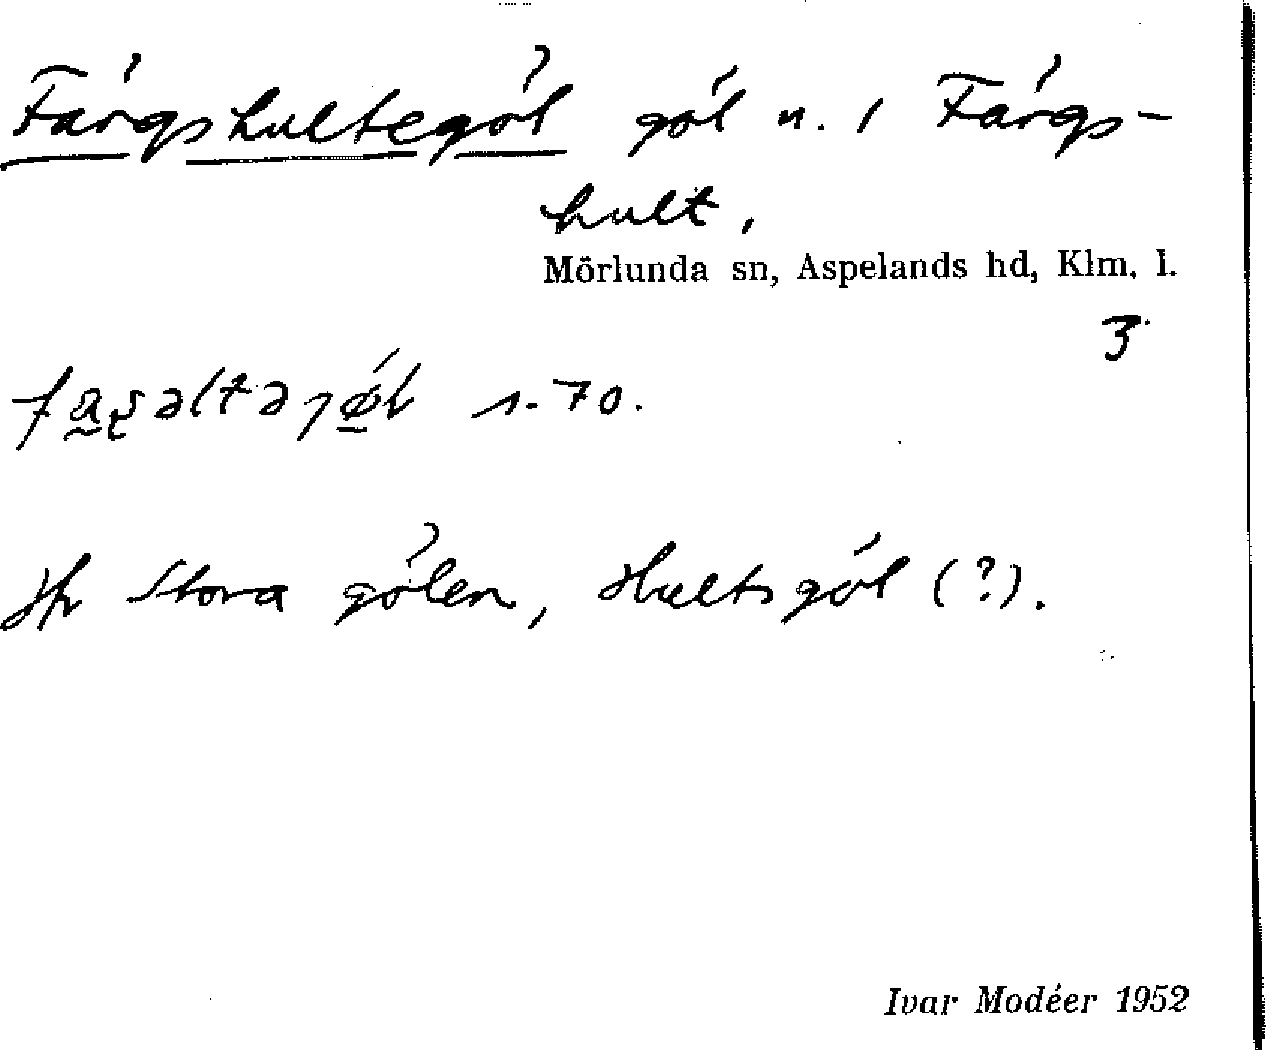 Färgshultegöl göl n. i Färgs-
hult,
Mörlunda sn, Aspelands hd, Klm. l.
3
s. 70.
Stora gölen, Hultsgöl (?).
Ivar Modéer 1952